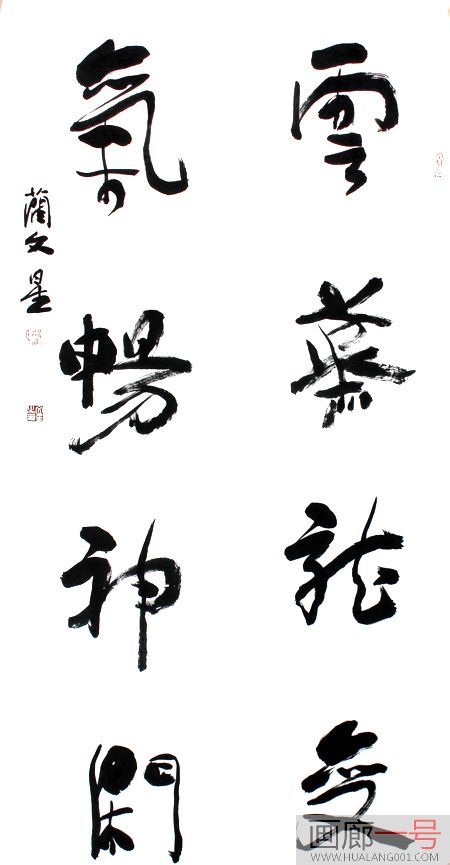 雲蒸龍变
氣暢神閑
藺文星
画廊一号
WWW.HUALANG001.COM